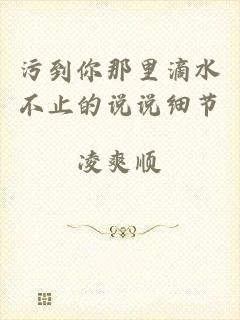 污到你那里滴水
不止的说说细节
凌爽顺